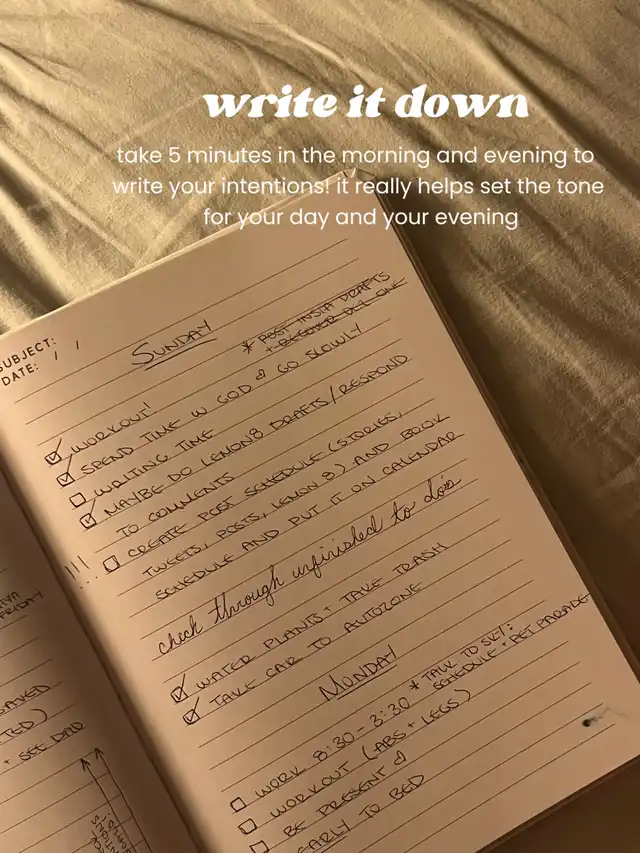 write it down
take 5 minutes in the morning and evening to
write your intentions! it really helps set the tone
for your day and your evening
SUBJECT:
DATE: / /
SUNDAY
* POST INSTA DRAFTS
WORKOUT!
SPEND TIME W GOD & GO SLOWLY
WRITING TIME
MAYBE DO LEMON8 DRAFTS / RESPOND
TO COMMENTS
!!! CREATE POST SCHEDULE (STORIES,
TWEETS, POSTS, LEMON 8) AND BOOK
SCHEDULE AND PUT IT ON CALENDAR
check through unfinished to do's
WATER PLANTS + TAKE TRASH
TAKE CAR TO AUTOZONE
MONDAY
* TALK TO SKY:
SCHEDULE + PET PARADE
WORK 8:30-3:30
WORKOUT (ABS + LEGS)
BE PRESENT
EARLY TO BED
FRIDAY
+ SEE DAD